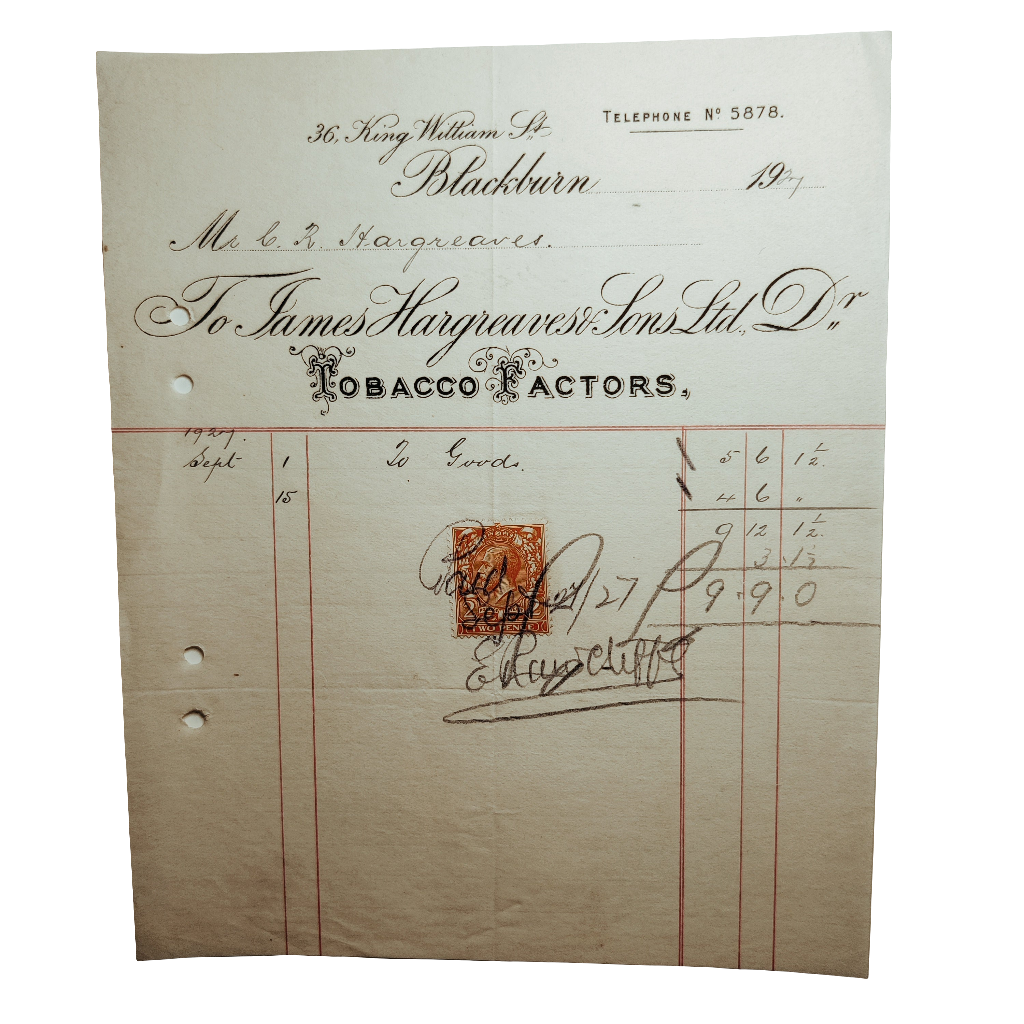 36, King William St
TELEPHONE Nº 5878.
Blackburn 1927
Mr C. R. Hargreaves.
To James Hargreaves & Sons Ltd., Dr
TOBACCO FACTORS.
1927.
Sept 1 To Goods. 5 6 1½.
15 4 6 "
9 12 1½.
3 . 1½
9 . 9 . 0
Paid
Sept 27/27
TWO PENCE